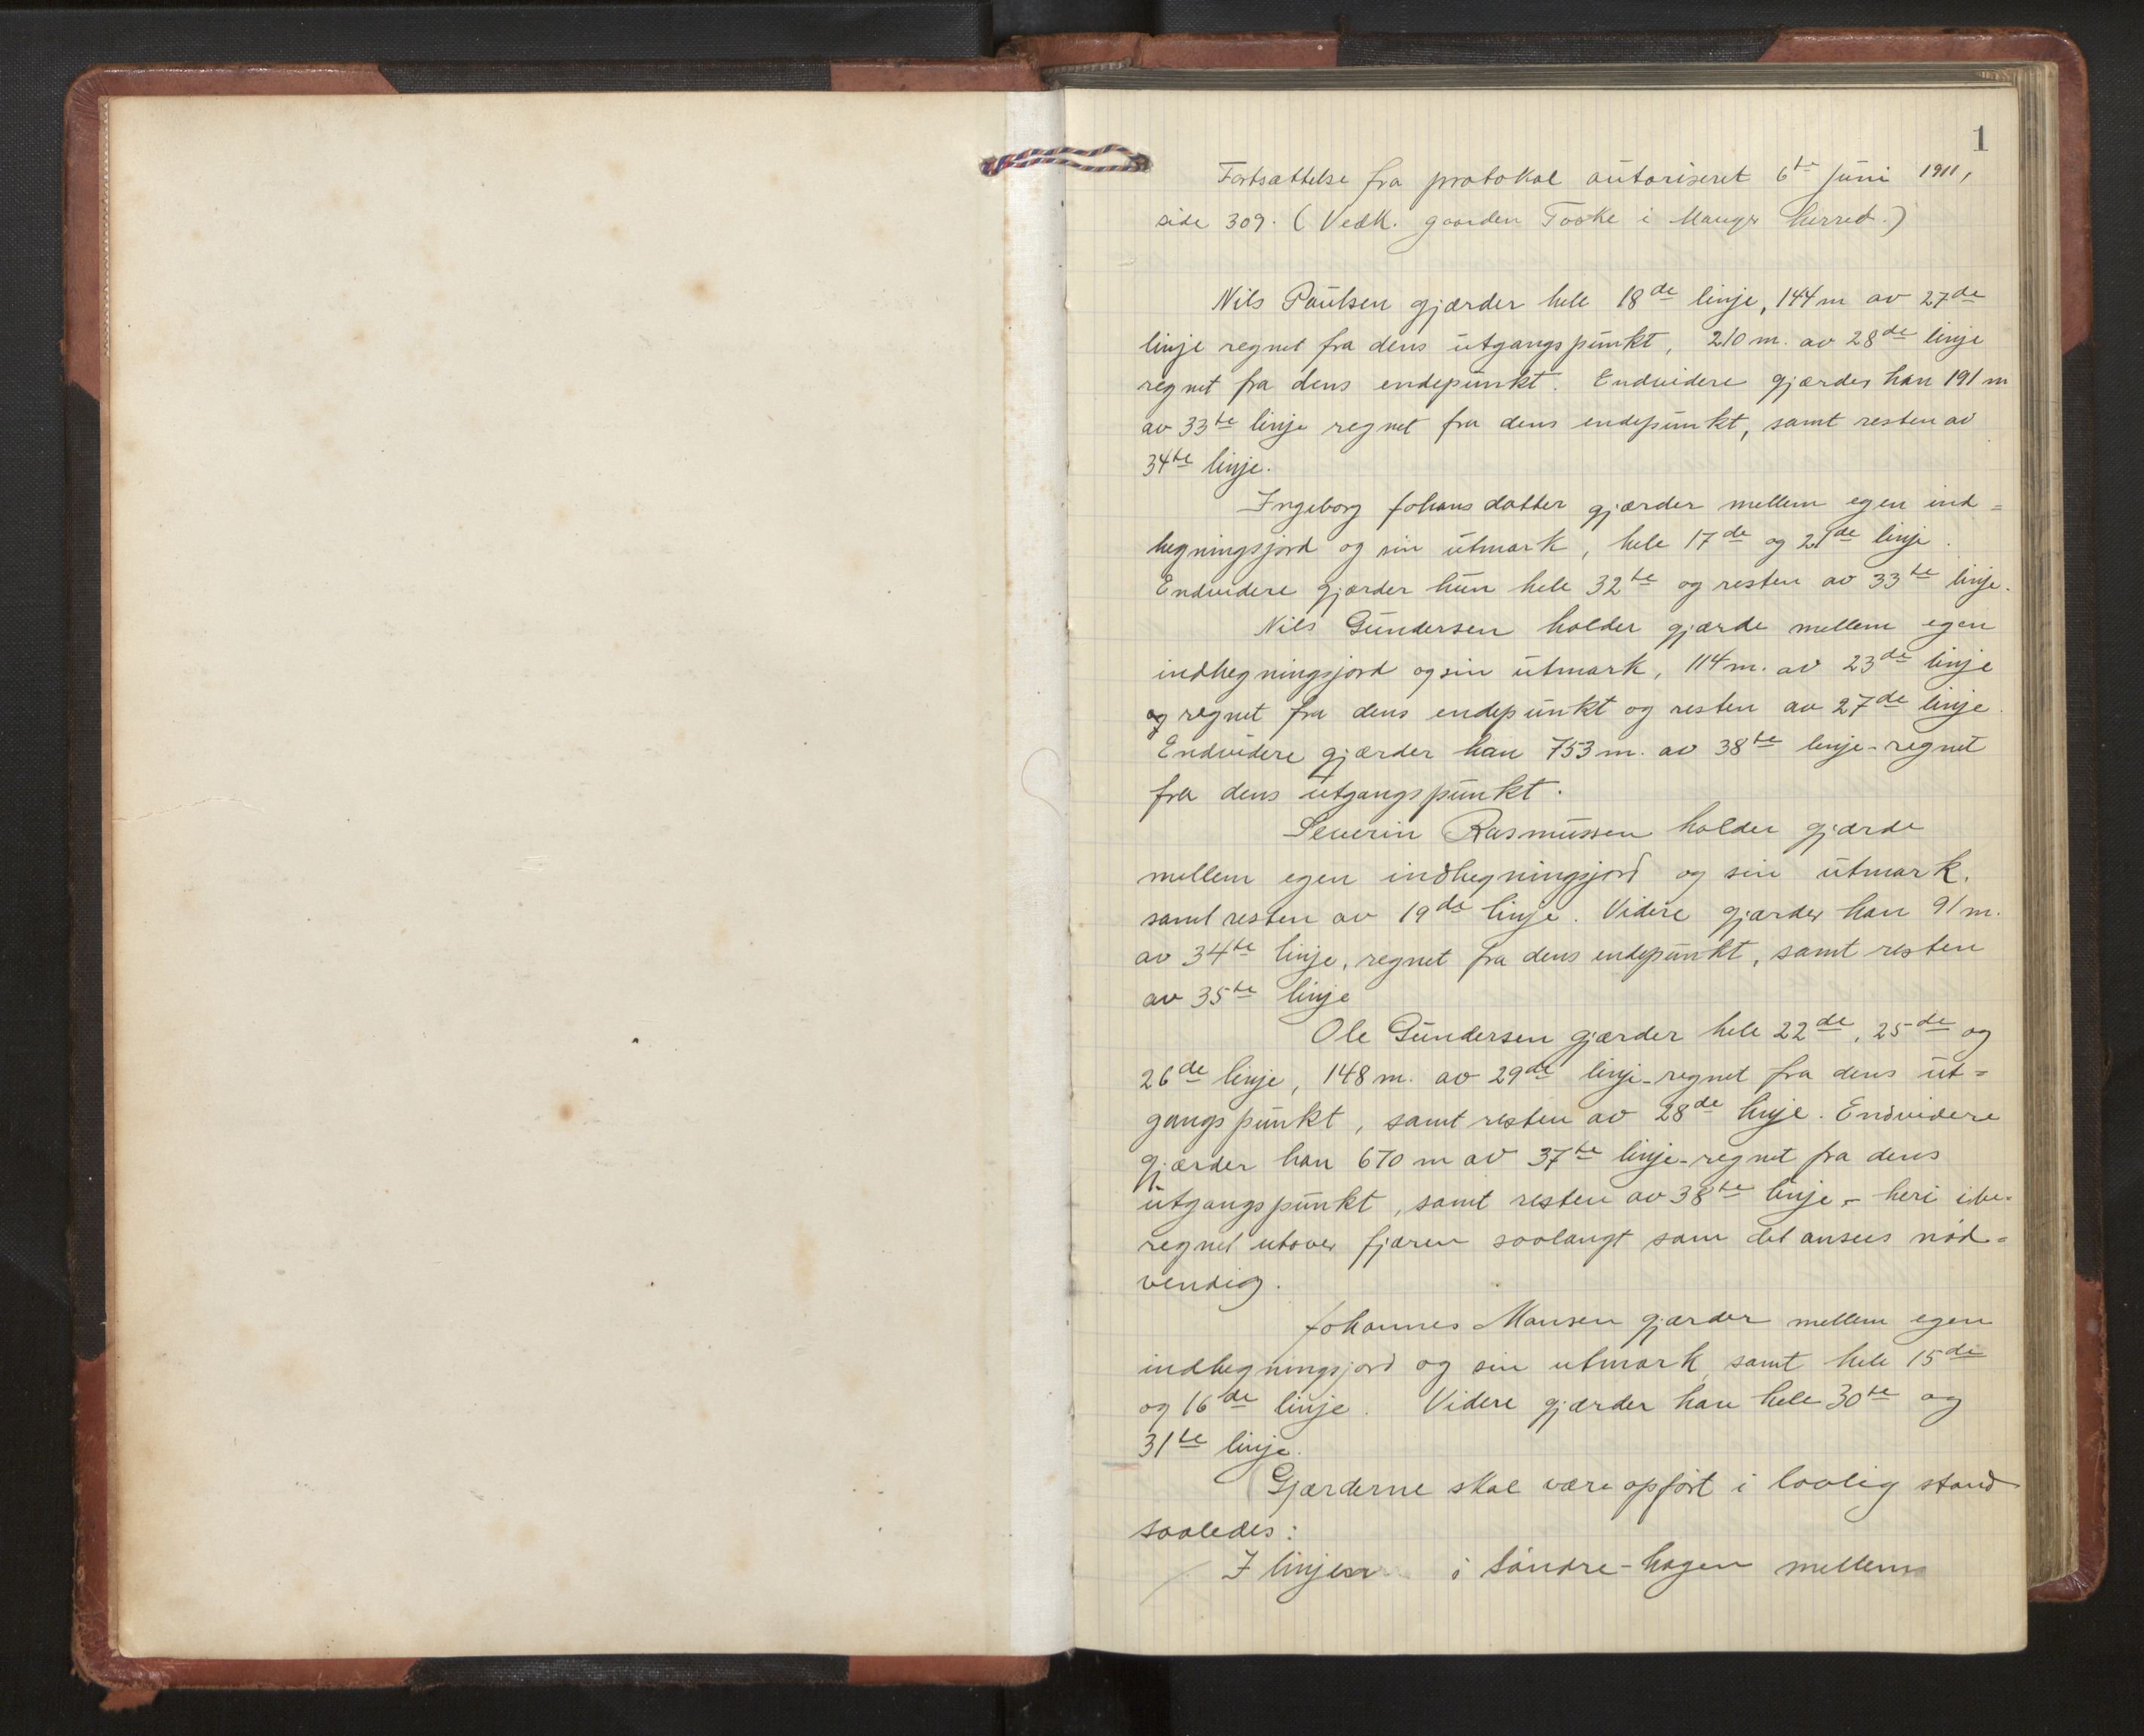 1
Fortsættelse fra protokol autoriseret 6te juni 1911,
side 309. (Vedk. gaarden Toske i Manger herred.)
Nils Paulsen gjærder hele 18de linje, 144 m av 27de
linje regnet fra dens utgangspunkt, 210 m. av 28de linje
regnet fra dens endepunkt. Endvidere gjærder han 191 m
av 33te linje regnet fra dens endepunkt, samt resten av
34te linje.
Ingeborg Johansdatter gjærder mellem egen ind=
hegningsjord og sin utmark, hele 17de og 21de linje.
Endvidere gjærder hun hele 32te og resten av 33te linje.
Nils Gundersen holder gjærde mellem egen
indhegningsjord og sin utmark, 114 m. av 23de linje
og regnet fra dens endepunkt og resten av 27de linje.
Endvidere gjærder han 753 m. av 38te linje-regnet
fra dens utgangspunkt.
Severin Rasmussen holder gjærde
mellem egen indhegningsjord og sin utmark,
samt resten av 19de linje. Videre gjærder han 91 m.
av 34te linje, regnet fra dens endepunkt, samt resten
av 35te linje
Ole Gundersen gjærder hele 22de, 25de og
26de linje, 148 m. av 29de linje-regnet fra dens ut=
gangspunkt, samt resten av 28de linje. Endvidere
gjærder han 670 m av 37te linje-regnet fra dens
utgangspunkt, samt resten av 38te linje - heri ibe-
regnet utover fjæren saalangt som det ansees nød=
vendig.
Johannes Monsen gjærder mellem egen
indhegningsjord og sin utmark, samt hele 15de
og 16de linje. Videre gjærder han hele 30te og
31te linje.
Gjærderne skal være opført i lovlig stand
saaledes:
I linjen i Søndre-hagen mellem